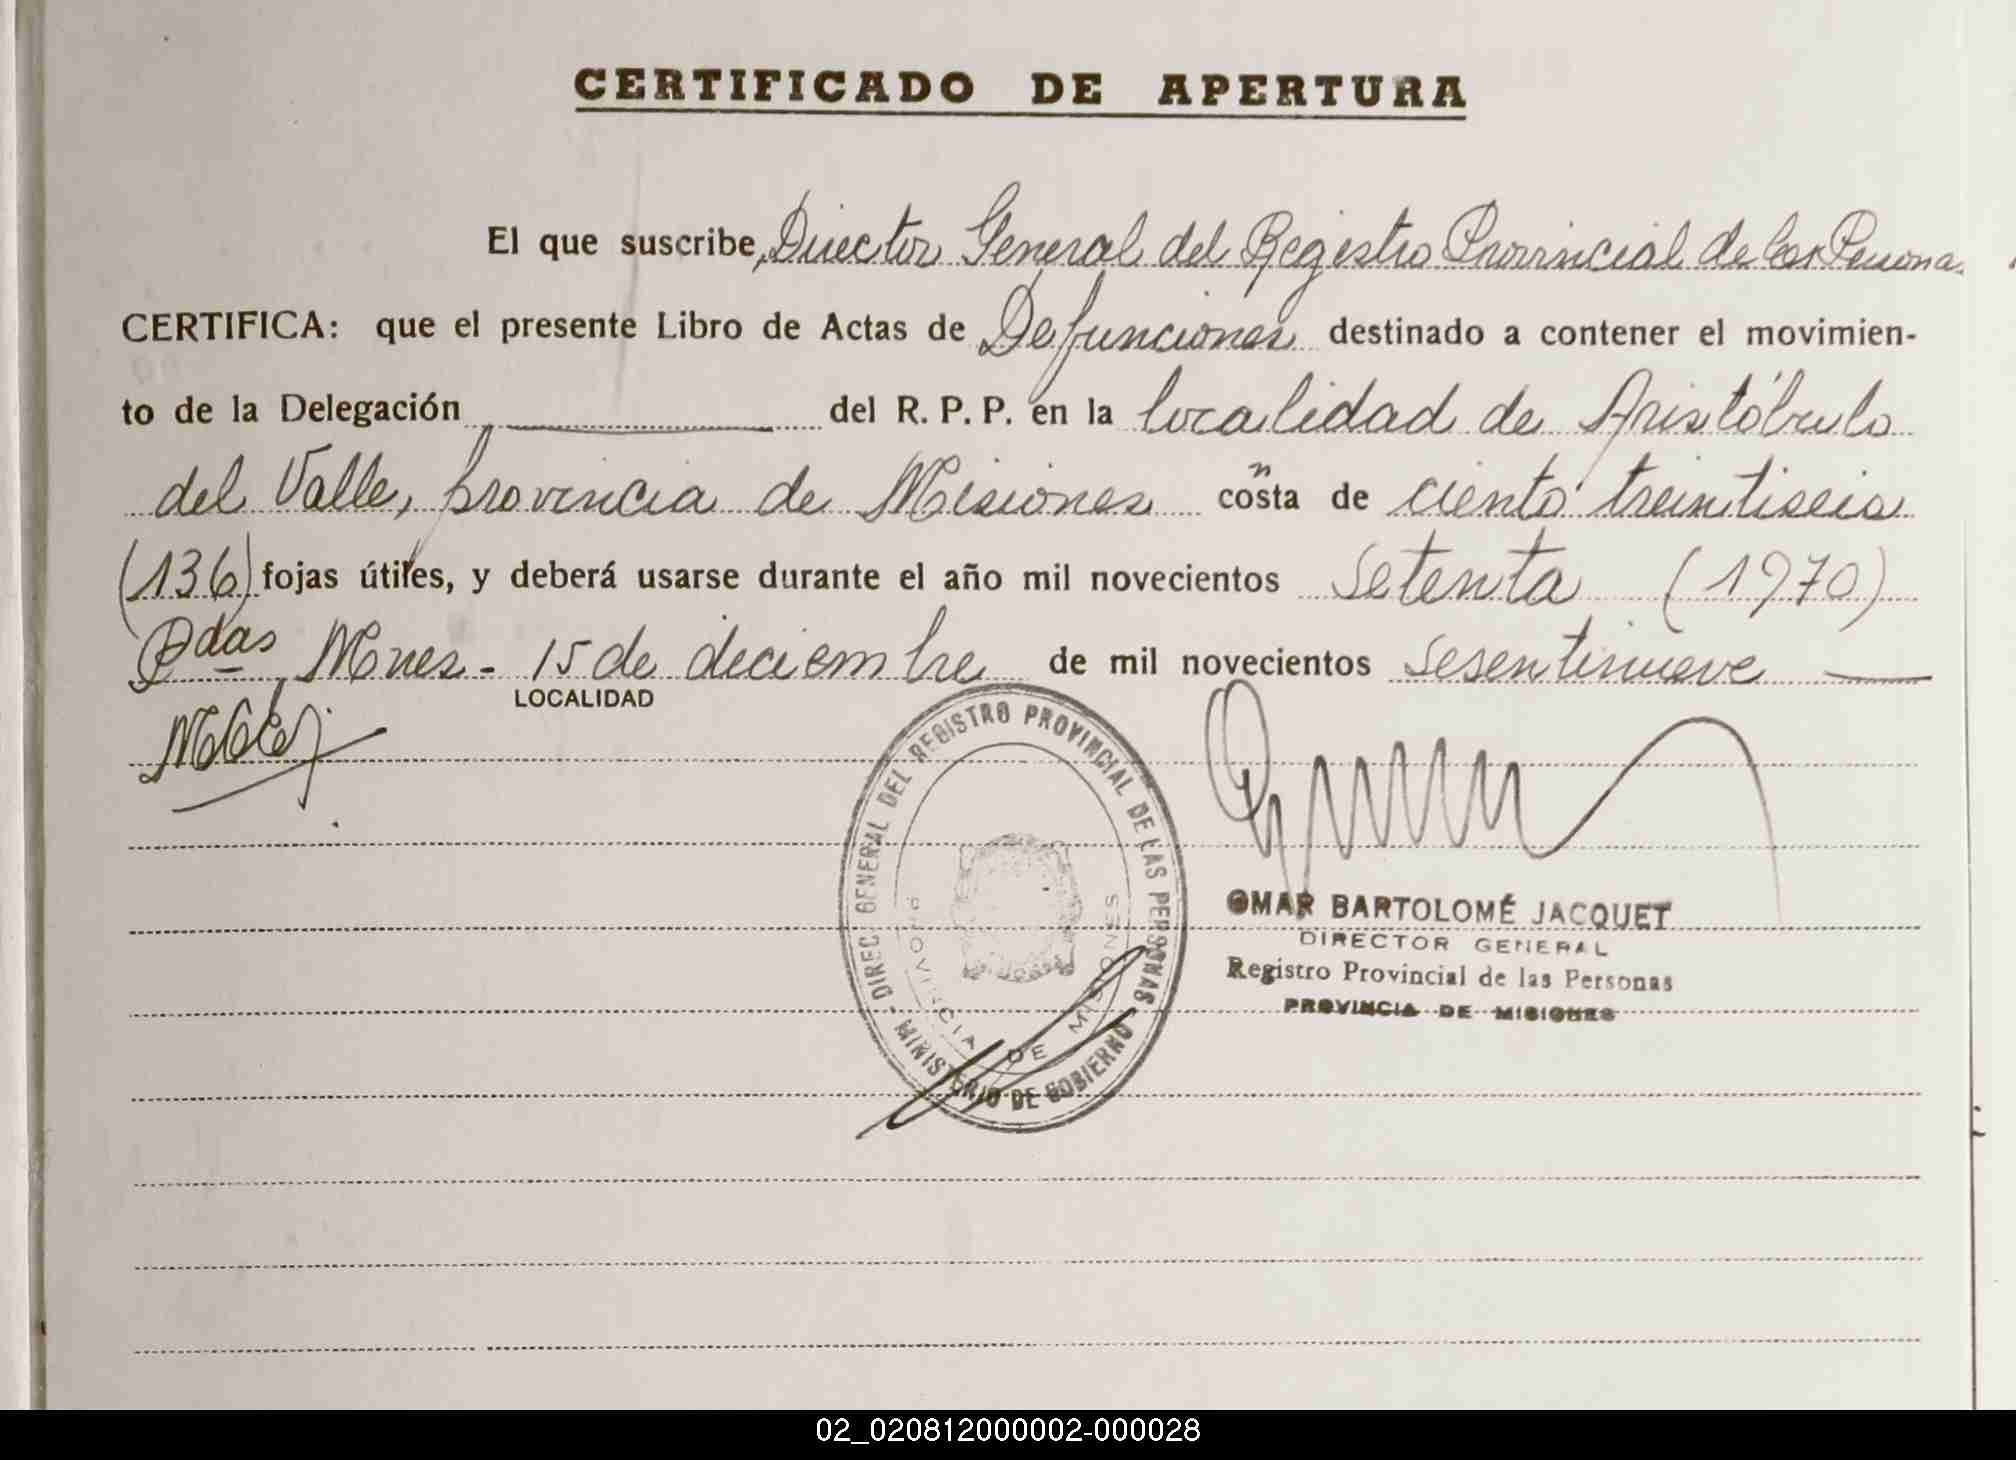 CERTIFICADO DE APERTURA
El que suscribe, Director General del Registro Provincial de las Persona
CERTIFICA: que el presente Libro de Actas de Defunciones destinado a contener el movimien-
to de la Delegación del R. P. P. en la localidad de Aristóbulo
del Valle, provincia de Misiones consta de ciento treintiseis
(136) fojas útiles, y deberá usarse durante el año mil novecientos setenta (1970)
Pdas Mnes - 15 de diciembre de mil novecientos sesentinueve
LOCALIDAD
DIREC GENERAL DEL REGISTRO PROVINCIAL DE LAS PERSONAS - MINISTERIO DE GOBIERNO -
PROVINCIA DE MISIONES
OMAR BARTOLOMÉ JACQUET
DIRECTOR GENERAL
Registro Provincial de las Personas
PROVINCIA DE MISIONES
02_020812000002-000028